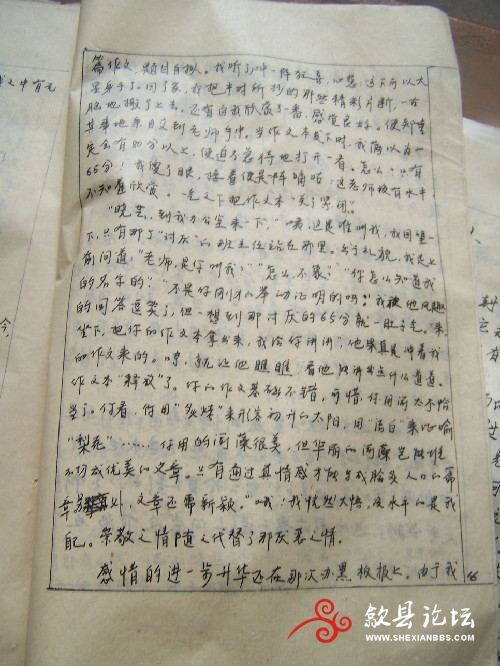 篇作文,题目自拟。我听了,心中一阵狂喜,心想:这下可以大
显身手了。回了家,我把平时所抄的那些精彩片断,一古
脑地搬了上去,还自我欣赏了一番,感觉良好。便郑重
其事地亲自交到老师手中。当作文本发下时,我满以为
会有80分以上,便迫不急待地打开一看。怎么?只有
65分!我傻了眼,接着便是一阵嘀咕:这老师没有水平
不知道欣赏。一气之下把作文本"关了禁闭"。
"晓芸,到我办公室来一下,""咦,这是谁叫我,我回望一
下,只有那"讨厌"的班主任站在那里。出于礼貌,我走上
前问道:"老师,是你叫我?""怎么,不象?""你怎么知道我
的名字的?""不是你刚才的举动证明的吗?"我被他风趣
的回答逗笑了,但一想到那讨厌的65分就一肚子气。"来,
坐下,把你的作文本拿出来,我给你讲讲",他果真是冲着我
的作文来的。哼,就让他瞧瞧,看他能讲出点什么道道。
作文本"释放"了。"你的作文基础不错,可惜,你用词太不恰
当了。你看,你用"炙烤"来形容初升的太阳,用"洁白"来比喻
"梨花"……你用的词藻很美,但华丽的词藻是堆
不切成优美的文章。只有通过真情感才能写成脍炙人口的篇
章,文章还需新颖。"哦!我恍然大悟,没水平的是我
自己。崇敬之情随之代替了那厌恶之情。
感情的进一步升华还在那次办黑板报上。由于我
16
文中有无
今,
歙县论坛
WWW.SHEXIANBBS.COM